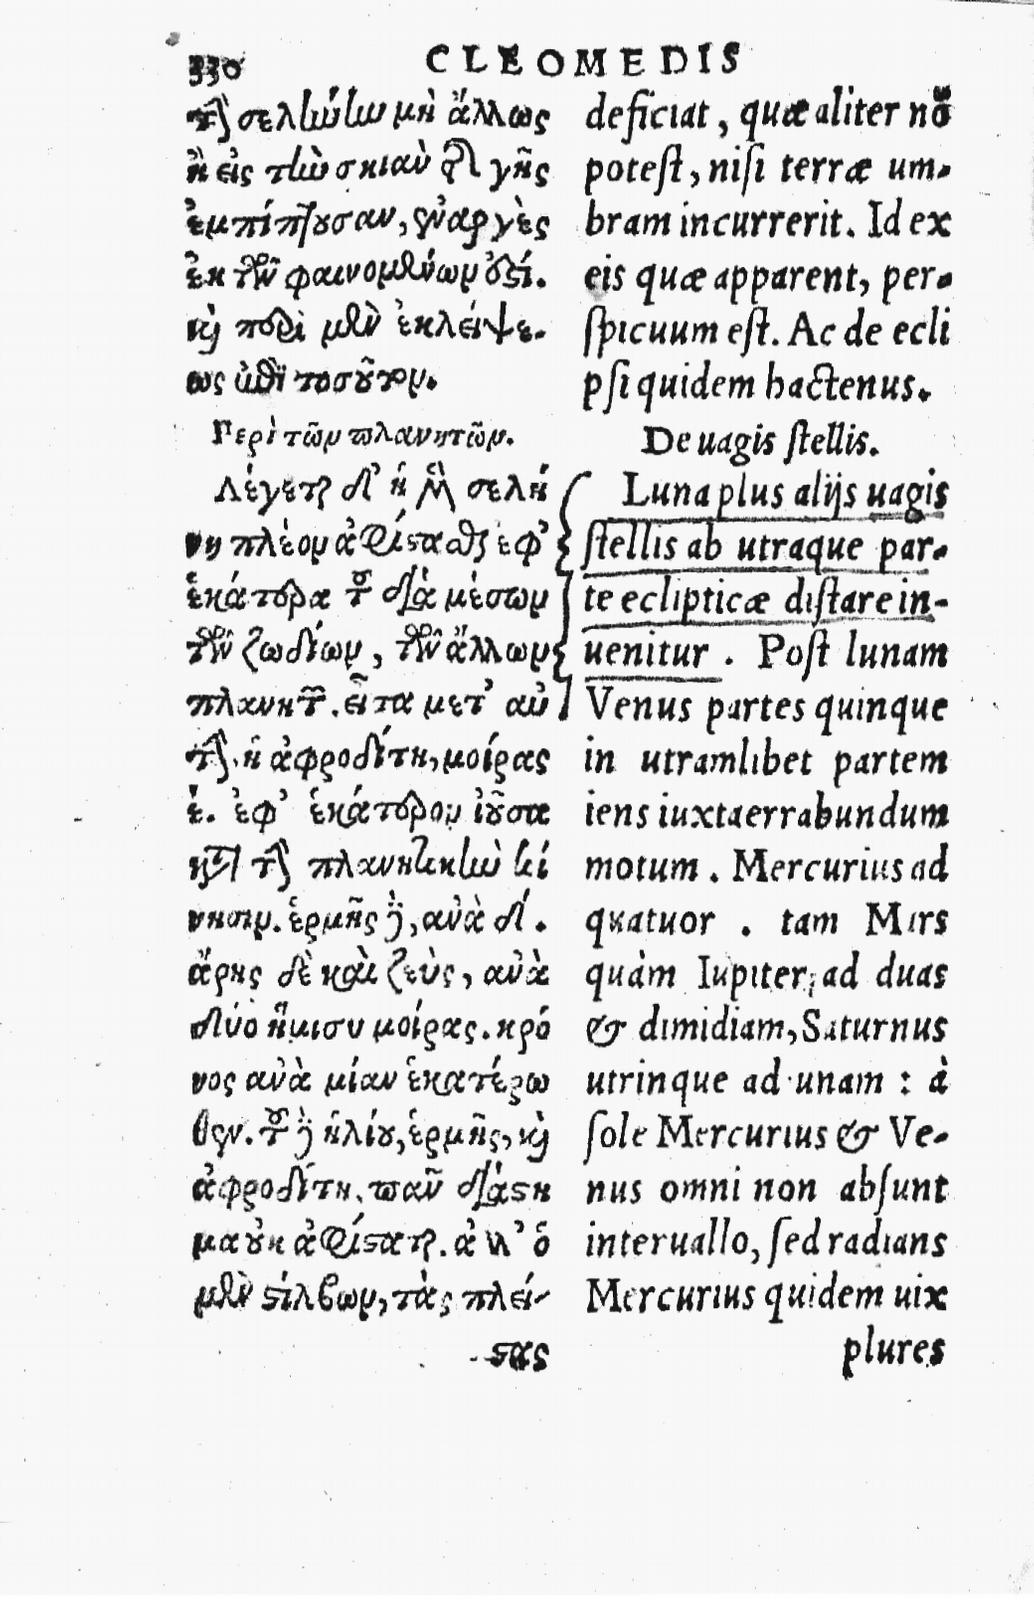 330
CLEOMEDIS
τὴν σελήνην μὴ ἄλλως
ἢ εἰς τὴν σκιὰν τῆς γῆς
ἐμπίπτουσαν, ἐναργὲς
ἐκ τῶν φαινομένων ἐστί.
καὶ περὶ μὲν ἐκλείψε-
ως ἐπὶ τοσοῦτον.
Περὶ τῶν πλανητῶν.
Λέγεται δ' ἡ μὲν σελή
νη πλέον ἀφίστασθαι ἐφ'
ἑκάτερα τοῦ διὰ μέσων
τῶν ζωδίων, τῶν ἄλλων
πλανητῶν. εἶτα μετ' αὐ
τὴν ἡ ἀφροδίτη, μοίρας
ἑ. ἐφ' ἑκάτερον ἰοῦσα
κατὰ τὴν πλανητικὴν κί
νησιν. ἑρμῆς δὲ, ἀνὰ δί.
ἄρης δὲ καὶ ζεὺς, ἀνὰ
δύο ἥμισυ μοίρας. κρό
νος ἀνὰ μίαν ἑκατέρω
θεν. τοῦ δὲ ἡλίου, ἑρμῆς, καὶ
ἀφροδίτη, πᾶν διάστη
μα οὐκ ἀφίσταται. ἀλλ' ὁ
μὲν στίλβων, τὰς πλεί-
στας
deficiat, quæ aliter nō
potest, nisi terræ um-
bram incurrerit. Id ex
eis quæ apparent, per-
spicuum est. Ac de ecli
psi quidem hactenus.
De uagis stellis.
Luna plus alijs uagis
stellis ab utraque par-
te eclipticæ distare in-
uenitur. Post lunam
Venus partes quinque
in utramlibet partem
iens iuxta errabundum
motum. Mercurius ad
quatuor. tam Mars
quàm Iupiter, ad duas
& dimidiam, Saturnus
utrinque ad unam : à
sole Mercurius & Ve-
nus omni non absunt
interuallo, sed radians
Mercurius quidem uix
plures